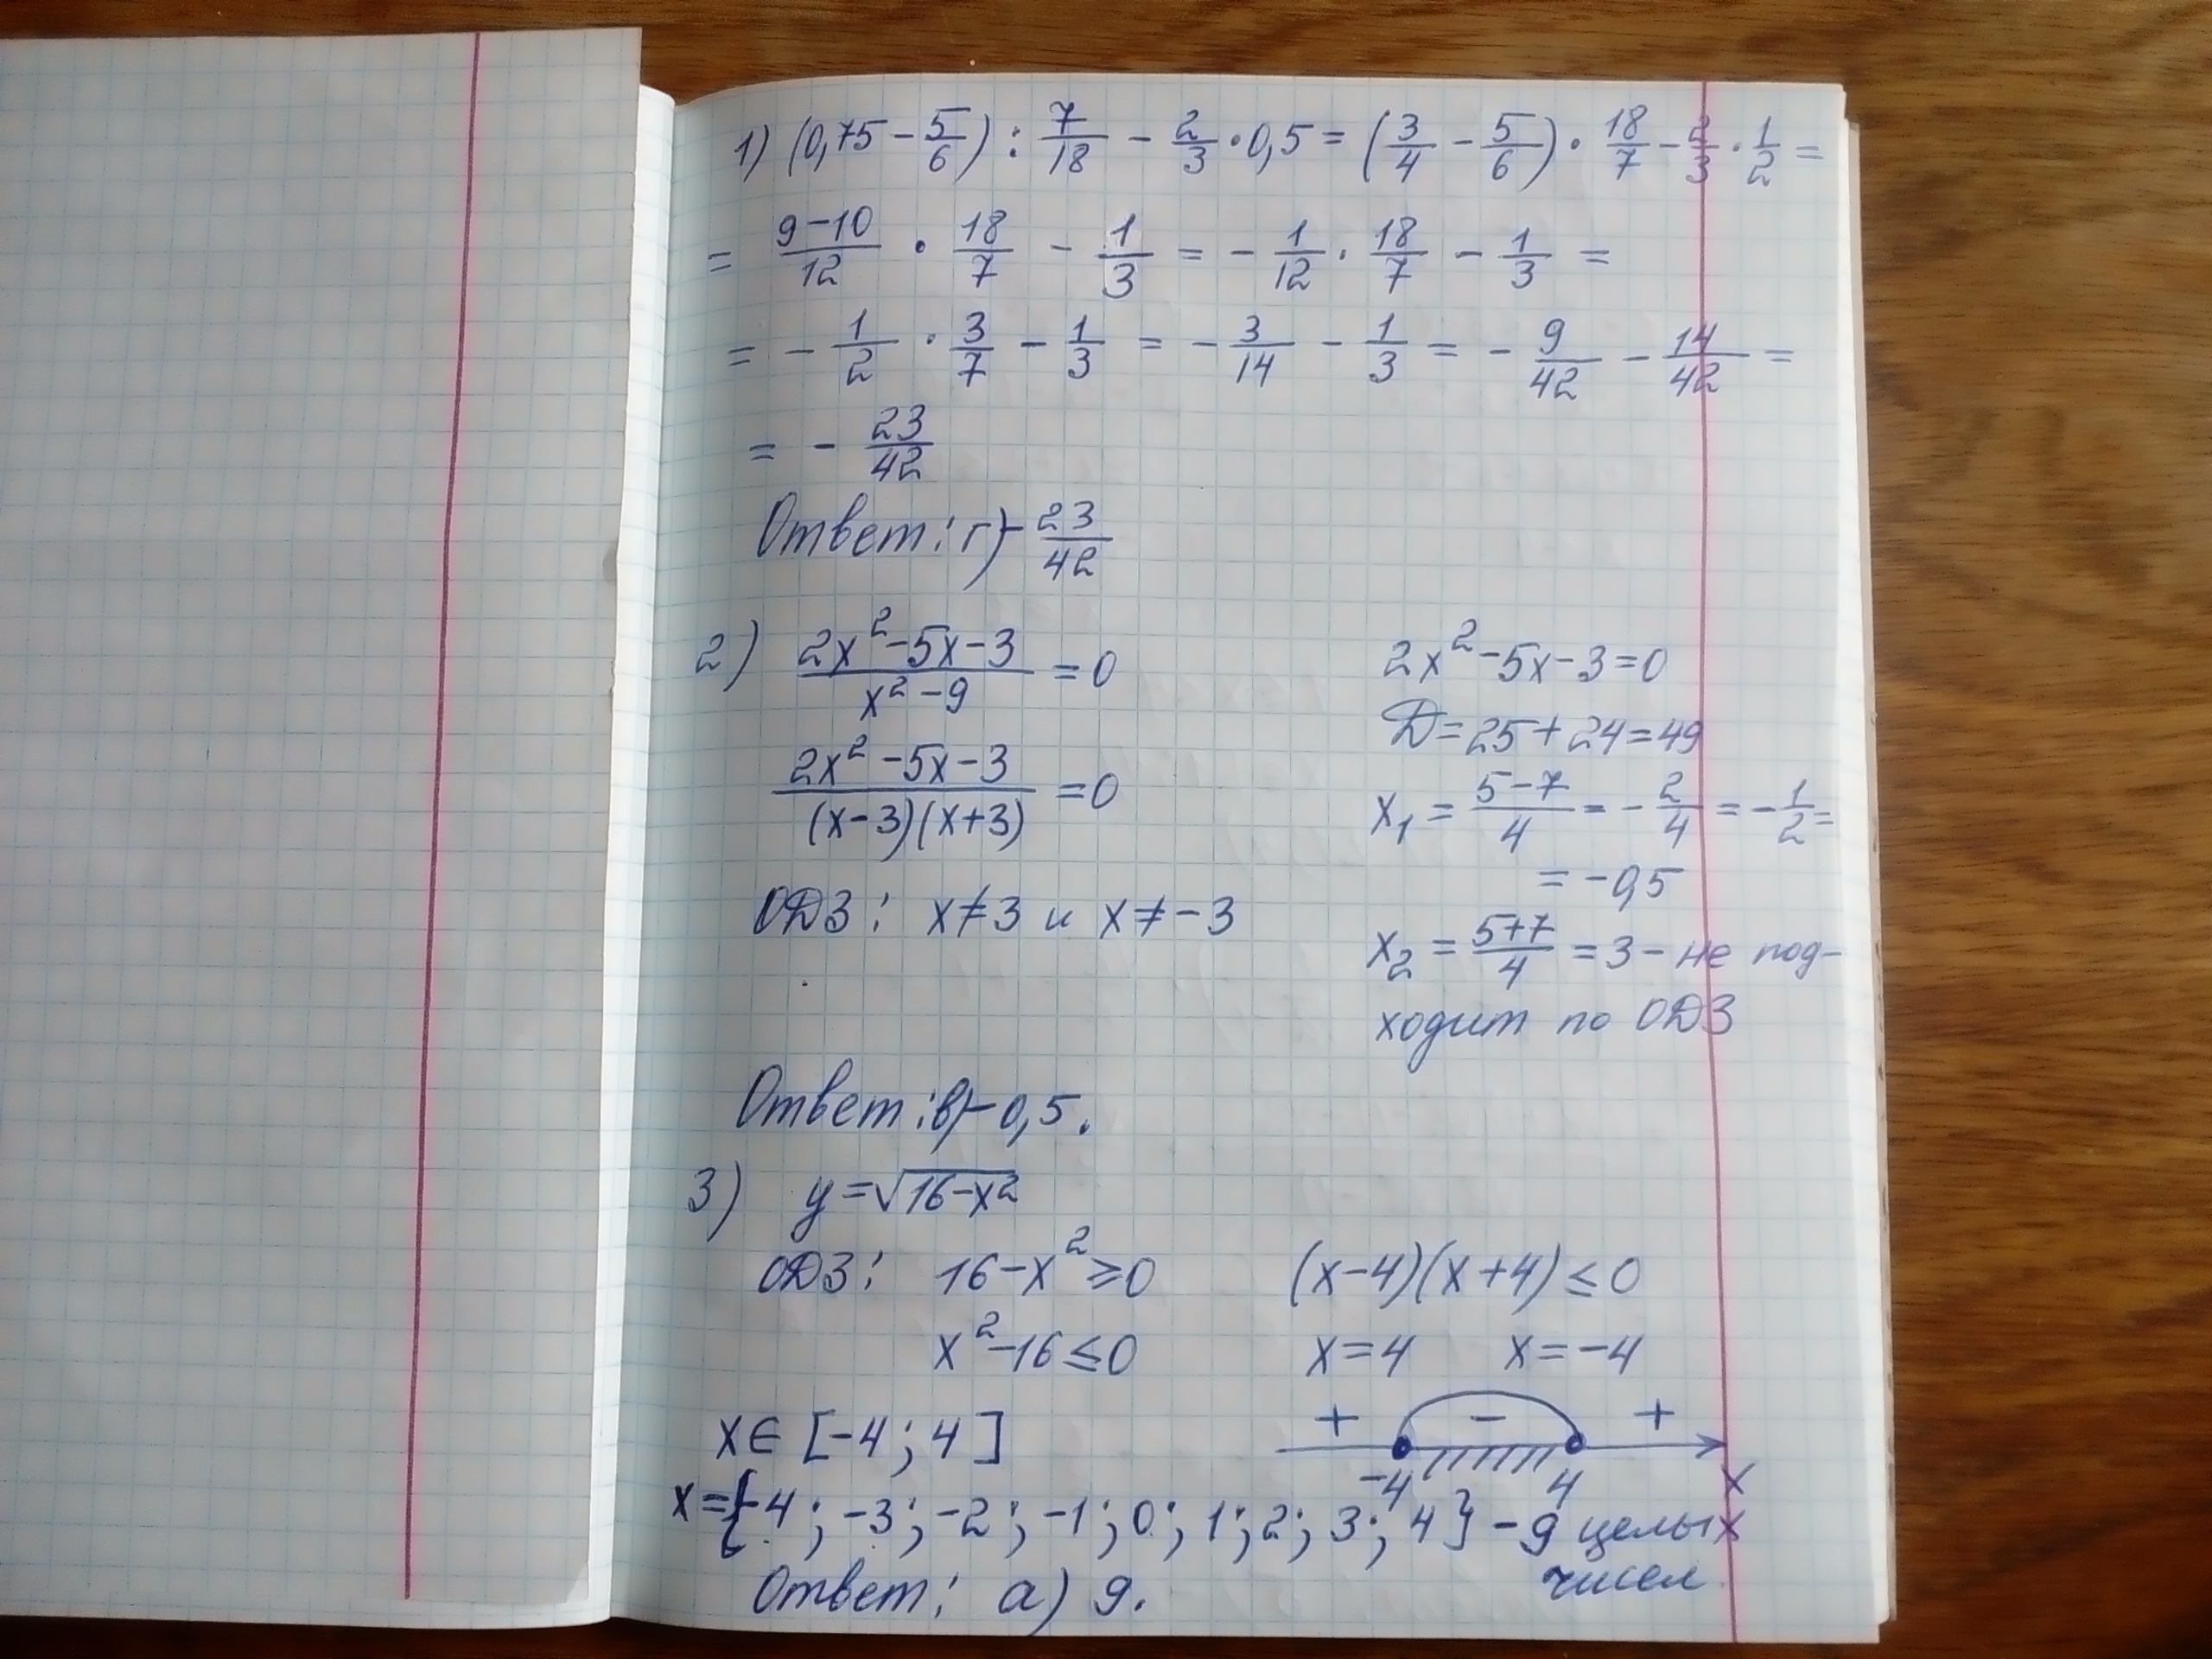 1) (0,75 - 5/6) : 7/18 - 2/3 · 0,5 = (3/4 - 5/6) · 18/7 - 2/3 · 1/2 =
= (9-10)/12 · 18/7 - 1/3 = - 1/12 · 18/7 - 1/3 =
= - 1/2 · 3/7 - 1/3 = - 3/14 - 1/3 = - 9/42 - 14/42 =
= - 23/42
Ответ: г) - 23/42
2) (2x² - 5x - 3)/(x² - 9) = 0
(2x² - 5x - 3)/((x-3)(x+3)) = 0
ОДЗ: x ≠ 3 и x ≠ -3
2x² - 5x - 3 = 0
D = 25 + 24 = 49
x₁ = (5-7)/4 = - 2/4 = - 1/2 =
= -0,5
x₂ = (5+7)/4 = 3 - не под-
ходит по ОДЗ
Ответ: в) -0,5.
3) y = √(16-x²)
ОДЗ: 16 - x² ≥ 0 (x-4)(x+4) ≤ 0
x² - 16 ≤ 0 x = 4 x = -4
x ∈ [-4; 4]
+ - +
-4 4 x
x = {-4; -3; -2; -1; 0; 1; 2; 3; 4} - 9 целых
чисел
Ответ: а) 9.